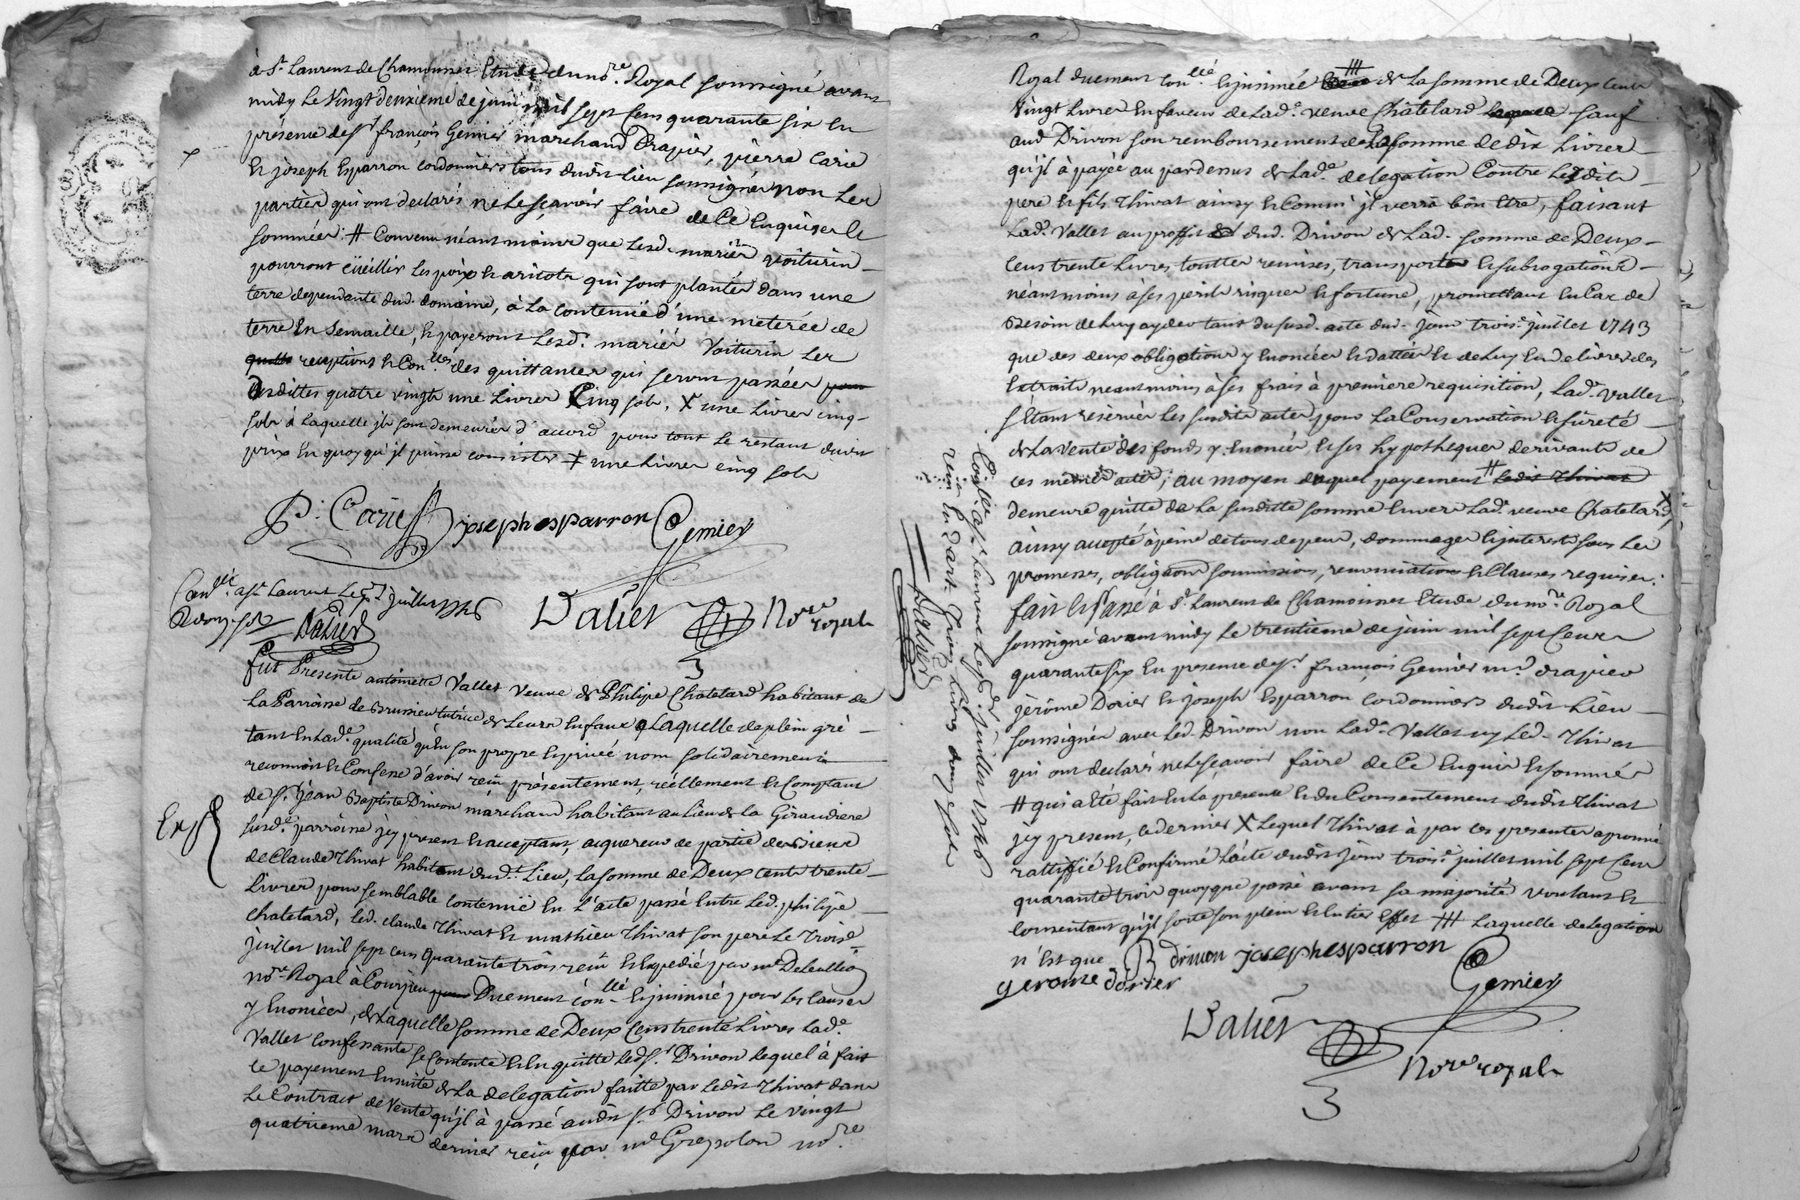 à St. Laurent de Chamousset Etude du no.re Royal soussigné avant
midy Le Vingt deuxieme de juin mil sept Cens quarante six En
présence de Sr françois Gemier marchand Drapier, pierre Carie
Et joseph Esparron cordonniers tous dudit Lieu soussignés non Les
parties qui ont declarés ne Le sçavoir faire de Ce Enquises Et
sommées. # Convenu néantmoins que Lesd. mariés voiturin
pourront cüeillir Les poix Et aricots qui sont plantés dans une
terre dependante dud. domaine, à La contenüe d'une meterée de
terre En semaille, Et payeront Lesd. mariés Voiturin Les
receptions Et Con.lles des quittances qui seront passées
desdittes quatre vingt une Livres Cinq sols, X une Livres cinq
sols à Laquelle ils sont demeurés d'accord pour tout Le restant dudit
prix En quoy qu'il puisse consister X une Livres cinq sols
P. Carie josephesparron Gemier
Con.llé à St. Laurent Le 7 juillet 1746
Reçu
Valiet
Valiet No.re royal
fut Presente antoinette Vallet Veuve de Philipe Chatelard habitant de
La Parroisse de Brussieu tutrice de Leurs Enfans Laquelle de plein gré
tant En Lad.e qualité qu'En son propre Et privé nom solidairement
reconnoit Et Confesse d'avoir reçu présentement, réellement Et Comptant
de Sr. jean Baptiste Drivon marchand habitant au Lieu de la Giraudiere
susd.e parroisse icy present Et acceptant, acquereur de partie des biens
de Claude Thivat habitant dud.t Lieu, La somme de Deux cents trente
Livres pour semblable contenüe En L'acte passé Entre Led. philipe
chatelard, Led. claude Thivat Et mathieu Thivat son pere Le trois.e
juillet mil sept cens quarante trois reçu Et Expedié par me
Exp.é
no.re Royal à Courzieu Duement con.llé Et insinué pour Les causes
y Enoncées, de Laquelle somme de Deux Cens trente Livres Lad.e
Vallet Confessante se contente Et En quitte Led. Sr Drivon Lequel à fait
Le payement Ensuite de La delegation faitte par Ledit Thivat dans
Le Contract de Vente qu'il à passé audit Sr Drivon Le vingt
quatrieme mars dernier reçu par me Grezolon no.re
Royal duement Con.llé Et insinué ### de La somme de Deux Cents
Vingt Livres En faveur de Lad.e veuve Chatelard sauf
aud Drivon son remboursement de La somme de dix Livres
qu'il à payée au pardessus de Lad.e delegation Contre Lesdits
pere Et fils Thivat ainsy Et Comme il verra bon Etre, faisant
Lad. Vallet au proffit dud. Drivon de Lad. somme de Deux
Cens trente Livres, touttes remises, transports Et subrogations
néantmoins à ses perils risques Et fortune, promettant En Cas de
Besoin de Luy ayder tant du susd. acte dud. jour trois.e juillet 1743
que des deux obligations y Enoncées Et dattées Et de Luy En delivrer des
Extraits neantmoins à ses frais à premiere requisition, Lad.e Vallet
s'Etant reservées Les susdits actes pour La Conservation Et sureté
de La Vente des fonds y Enoncés, Et ses hypotheques derivants de
ces mêmes actes; au moyen duquel payement # Ledit Thivat
demeure quitte de La susditte somme Envers Lad. veuve Chatelard, X
ainsy accepté à peine de tous depens, dommages Et interests sous Les
promesses, obligations soumissions, renonciations Et Clauses requises.
fait Et Passé à St. Laurent de Chamousset Etude du no.re Royal
soussigné avant midy Le trentieme de juin mil sept Cens
quarante six En presence de Sr. françois Gemier m.d drapier
jérôme Dorier Et joseph Esparron cordonniers dudit Lieu
soussignés avec Led. Drivon non Lad.e Vallet ny Led. Thivat
qui ont declarés ne Le sçavoir faire de Ce Enquis Et sommés
# qui a Eté fait En La presence Et du Consentement dudit Thivat
icy present, Ce dernier X Lequel Thivat à par ces presentes aprouvé
rattiffié Et Confirmé L'acte dudit jour trois.e juillet mil sept Cens
quarante trois quoyque passé avant sa majorité voulant Et
consentant qu'il sorte son plein Et Entier Effet ### Laquelle delegation
n'Est que
B drivon josephesparron
gerome dorier
Gemier
Valiet
No.re royal
Con.llé à St. Laurent Le 7 juillet 1746
reçu
Valiet